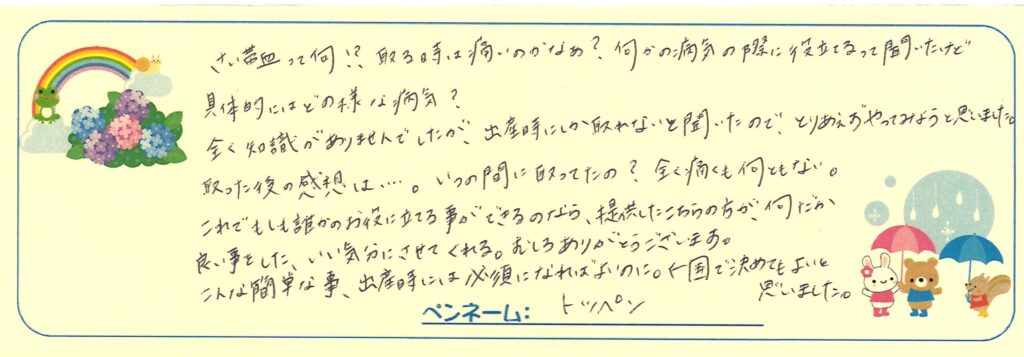 さい帯血って何!? 取る時は痛いのかなぁ? 何かの病気の際に役立てるって聞いたけど
具体的にはどの様な病気?
全く知識がありませんでしたが、出産時にしか取れないと聞いたので、とりあえずやってみようと思いました。
取った後の感想は…。いつの間に取ってたの? 全く痛くも何ともない。
これでもしも誰かのお役に立てる事ができるのなら、提供したこちらの方が、何だか
良い事をした、いい気分にさせてくれる。むしろありがとうございます。
こんな簡単な事、出産時には必須になればよいのに。←国で決めてもよいと
思いました。
ペンネーム: トッペン